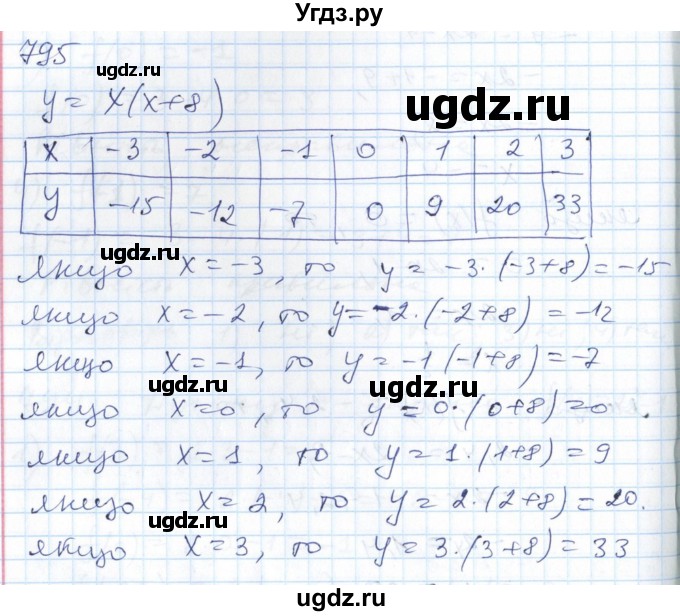 Угдз.ру
795
ugdz.ru
y = x(x+8)
ugdz.ru
x -3 -2 -1 0 1 2 3
y -15 -12 -7 0 9 20 33
ugdz.ru
ugdz.ru
якщо x = -3, то y = -3·(-3+8) = -15
якщо x = -2, то y = -2·(-2+8) = -12
ugdz.ru
якщо x = -1, то y = -1(-1+8) = -7
ugdz.ru
якщо x = 0, то y = 0·(0+8) = 0.
якщо x = 1, то y = 1·(1+8) = 9
якщо x = 2, то y = 2·(2+8) = 20.
ugdz.ru
ugdz.ru
якщо x = 3, то y = 3·(3+8) = 33
ugdz.ru